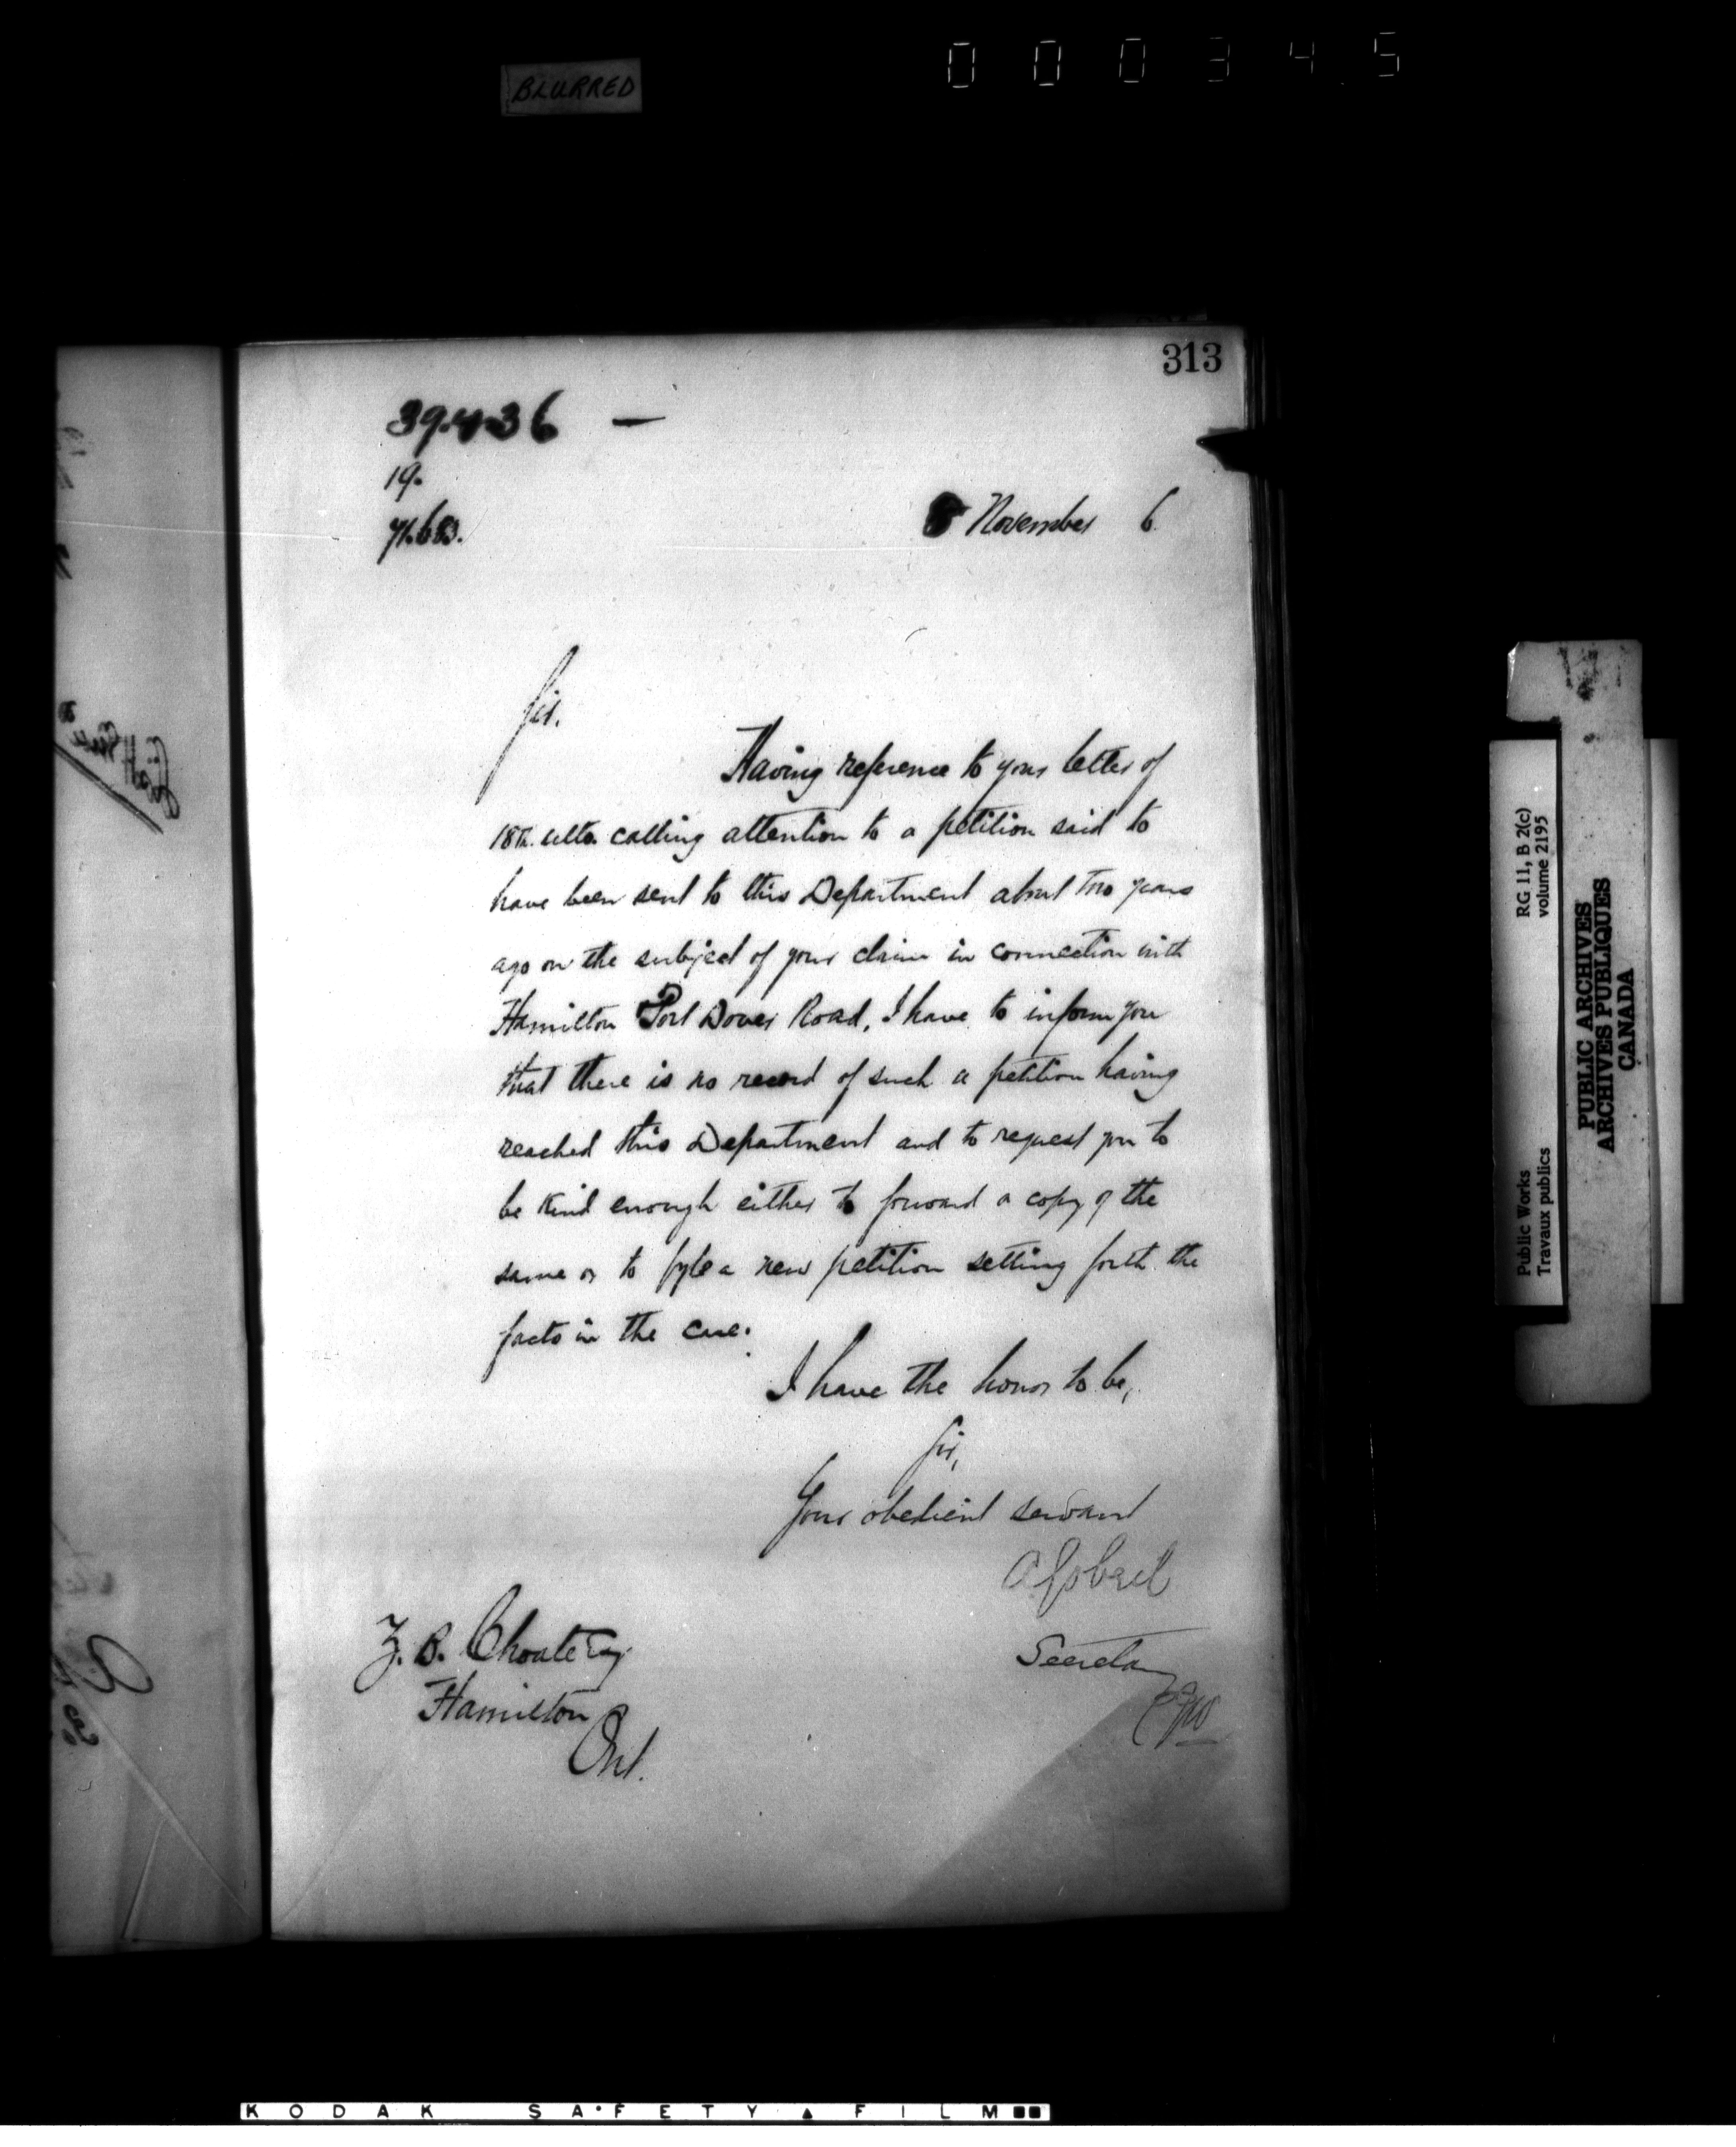 BLURRED
000345
313
39436 —
19.
71.683.
8 November 6
Sir,
Having reference to your letter of
18th. ulto. calling attention to a petition said to
have been sent to this Department about two years
ago on the subject of your claim in connection with
Hamilton Port Dover Road, I have to inform you
that there is no record of such a petition having
reached this Department and to request you to
be kind enough either to forward a copy of the
same or to fyle a new petition setting forth the
facts in the case.
I have the honor to be,
Sir,
Your obedient servant
A Gobeil
Secretary
Z. B. Choate Esq.
Hamilton
Ont.
RG 11, B 2(c)
volume 2195
Public Works
Travaux publics
PUBLIC ARCHIVES
ARCHIVES PUBLIQUES
CANADA
KODAK SAFETY FILM